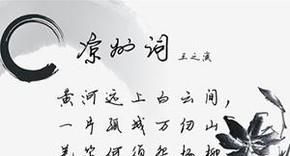 凉州词
王之涣
黄河远上白云间，
一片孤城万仞山
羌笛何须怨杨柳